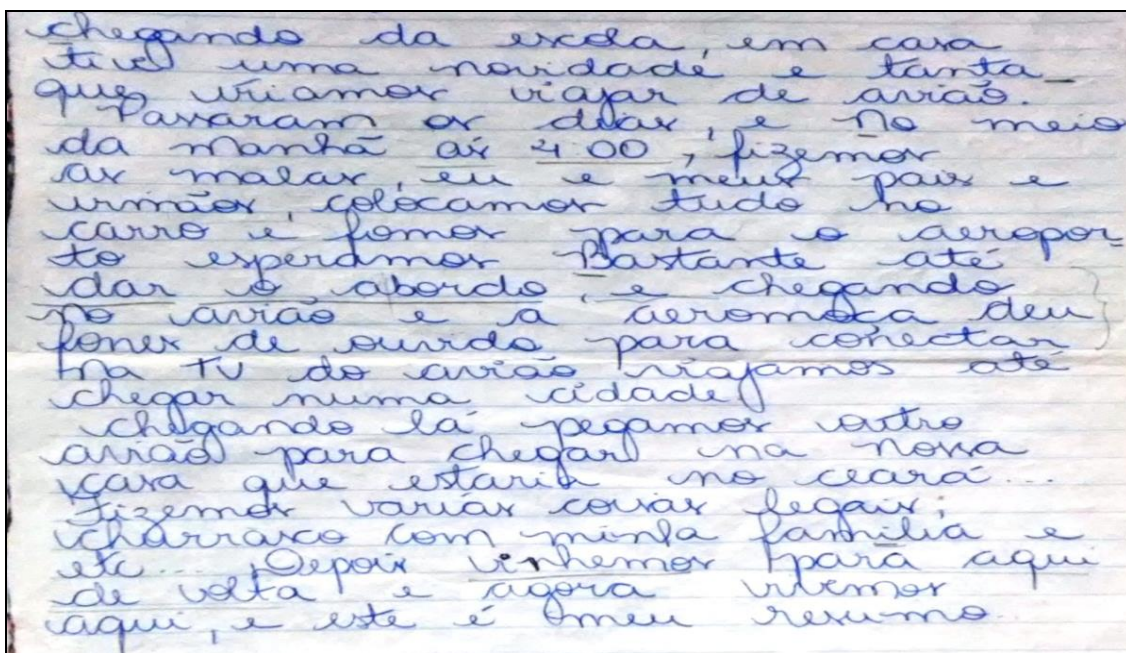 chegando da escola, em casa
tive uma novidade e tanta
que iriamos viajar de avião.
Passaram os dias, e no meio
da manhã as 4:00, fizemos
as malas, eu e meus pais e
irmãos, colocamos tudo no
carro e fomos para o aeropor-
to esperamos Bastante até
dar o abordo, e chegando
no avião e a aeromoça deu
fones de ouvido para conectar
na TV do avião viajamos até
chegar numa cidade
chegando lá pegamos outro
avião para chegar na nossa
casa que estaria no ceará...
Fizemos varias coisas legais;
churrasco com minha família e
etc... Depois vinhemos para aqui
de volta e agora vivemos
aqui, e este é meu resumo.